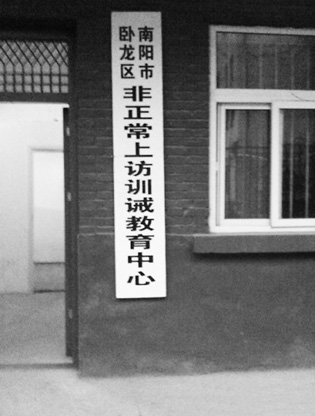 南阳市
卧龙区
非正常上访训诫教育中心